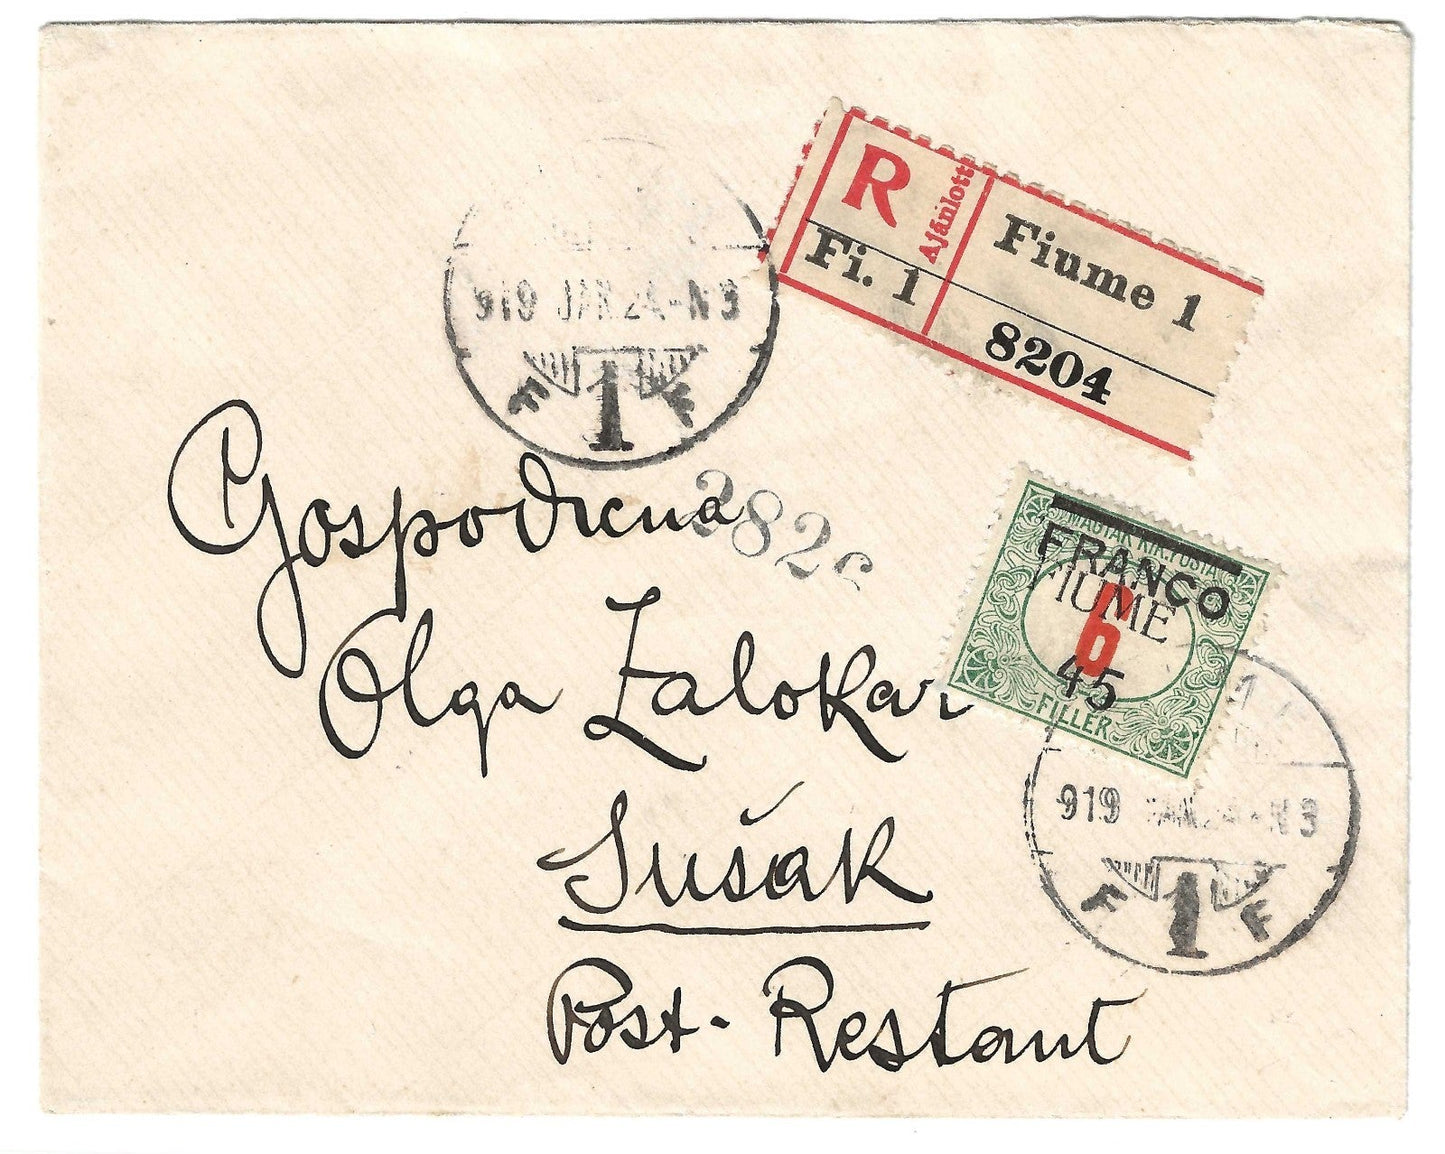 R
Ajánlott
Fiume 1
Fi. 1
8204
919 JAN 24 - N 3
F 1 F
Gospodicna
Olga Zalokar
Sušak
Post-Restant
MAGYAR KIR. POSTA
FRANCO
FIUME
6
45
FILLÉR
919 JAN 24 - N 3
F 1 F